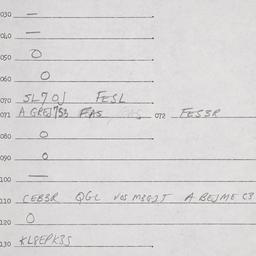 030 —
040 —
050 O
060 O
070 SL70J FESL
071 A GREJ753 FAS 072 FES3R
080 O
090 O
100 —
110 CEB3R QGL A BEJME C3
120 O
130 KL8EPK3S